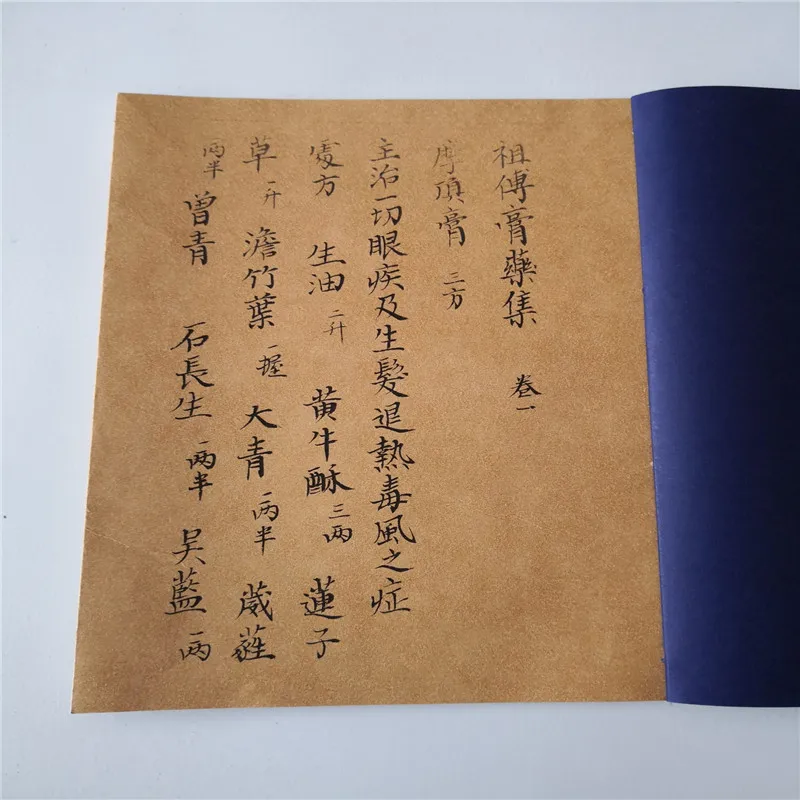 祖傳膏藥集 卷一
摩頂膏 三方
主治一切眼疾及生髮退熱毒風之症
處方 生油 二升 黃牛酥 三兩 蓮子
草 一升 澹竹葉 一握 大青 一兩半 葳蕤
兩半 曾青 石長生 一兩半 吴藍 一兩